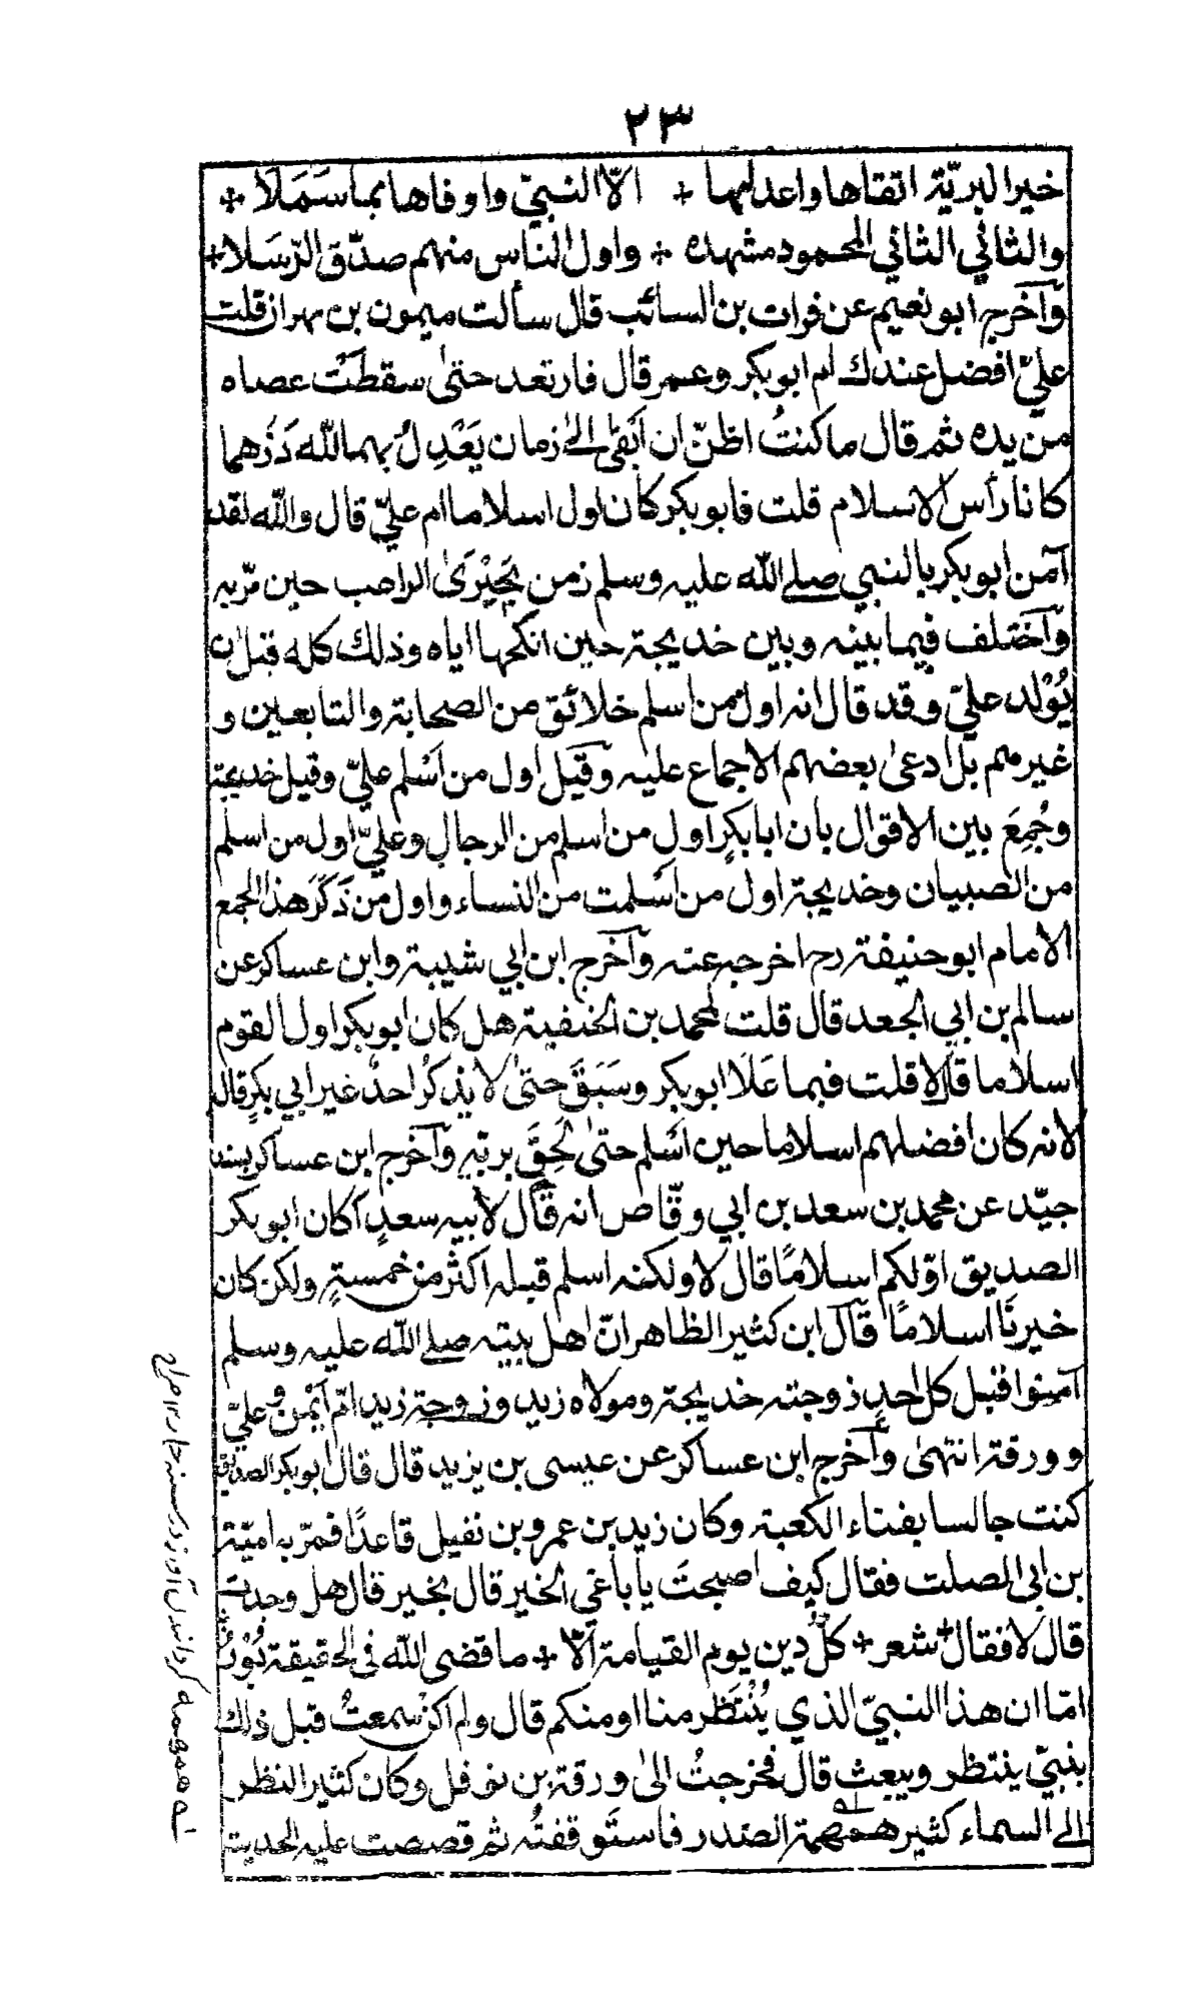 ٢٣
خير البريّة اتقاها واعدلها + الّا النبيّ واوفاها بما سَمَلَا +
والثاني الثاني المحمود مشهده + واول الناس منهم صدّق الرّسَلا +
وآخرج ابو نعيم عن فرات بن السائب قال سألت ميمون بن مهران قلت
عليّ افضل عندك ام ابو بكر وعمر قال فارتعد حتىٰ سقطَتْ عصاه
من يده ثم قال ما كنتُ اظنّ ان اَبقىٰ الىٰ زمان يَعْدِلُ بهما لله دَرُّهما
كانا رأس الاسلام قلت فابو بكر كان اول اسلاما ام عليّ قال والله لقد
آمن ابو بكر بالنبي صلے الله عليه وسلم زمن بَحِيْرَىٰ الراهب حين مرّ به
وآختلف فيما بينه وبين خديجة حين انكحها اياه وذلك كله قبل ان
يُوْلد عليّ وقد قال انه اول من اسلم خلائق من الصحابة والتابعين و
غيرهم بل ادعىٰ بعضهم الاجماع عليه وقيل اول من اَسْلم عليّ وقيل خديجة
وجُمِعَ بين الاقوال بان ابا بكرٍ اول من اسلم من الرجال وعليّ اول من اسلم
من الصبيان وخديجة اول من اَسْلمت من النساء واول من ذَكَرَ هذا الجمع
الامام ابو حنيفة رح اخرجه عنه وآخرج ابن ابي شيبة وابن عساكر عن
سالم بن ابي الجعد قال قلت لمحمد بن الحنفية هل كان ابو بكر اول القوم
اسلاما قال لا قلت فبما عَلَا ابو بكر وسَبَقَ حتىٰ لا يذكرُ احدٌ غير ابي بكرٍ قال
لانه كان افضلهم اسلاما حين اَسْلم حتىٰ لَحِقَ بربّه وآخرج ابن عساكر بسند
جيّد عن محمد بن سعد بن ابي وقّاص انه قال لابيه سعدٍ أكان ابو بكر
الصديق اوّلكم اسلامًا قال لا ولكنه اسلم قبله اكثر من خمسةٍ ولكن كان
خيرنَا اسلامًا قال ابن كثير الظاهر انّ اهل بيته صلے الله عليه وسلم
آمنوا قبل كل احدٍ زوجته خديجة ومولاه زيد وزوجة زيد امّ اَيْمن وعليّ
وورقة انتهىٰ وآخرج ابن عساكر عن عيسى بن يزيد قال قال ابو بكر الصديق
كنت جالسا بفناء الكعبة وكان زيد بن عمرو بن نفيل قاعدًا فمرّ به اميّة
بن ابى الصلت فقال كيف اصبحتَ يا باغي الخير قال بخير قال هل وجدتَ
قال لا فقال شعر + كلّ دين يوم القيامة اِلّا + ما قضى الله في الحقيقة بُوْرُ
امّا ان هذا النبيّ الذي يُنْتَظَر منا او منكم قال ولم اكن سمعتُ قبل ذلك
بنبيّ ينتظر ويبعث قال فخرجتُ الىٰ ورقة بن نوفل وكان كثير النظر
الے السماء كثير همهمة الصّدر فاستَوقفتُه ثم قصصت عليه الحديث
له همهمه گردانیدن آواز در سینه ١٢ صراح